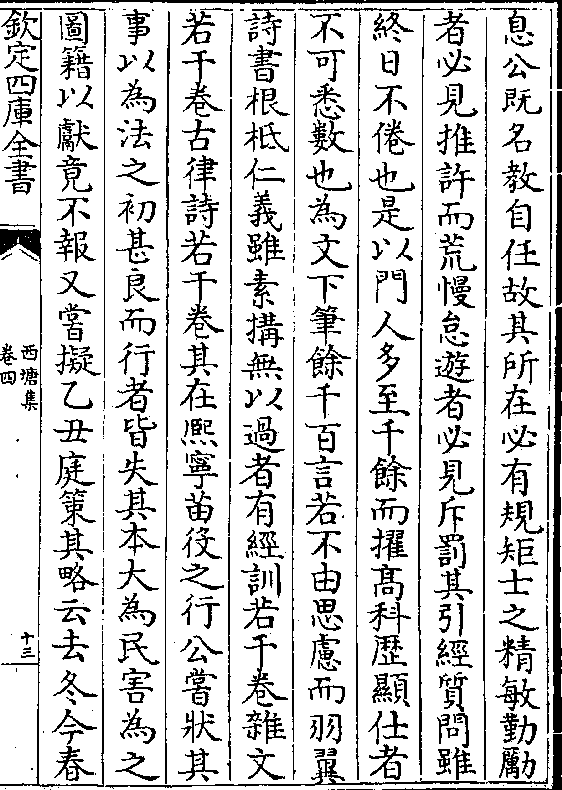 息公既名教自任故其所在必有規矩士之精敏勤勵
者必見推許而荒慢怠遊者必見斥罰其引經質問雖
終日不倦也是以門人多至千餘而擢髙科歴顯仕者
不可悉數也為文下筆餘千百言若不由思慮而羽翼
詩書根柢仁義雖素搆無以過者有經訓若干卷雜文
若干卷古律詩若干卷其在熈寧苗役之行公嘗狀其
事以為法之初甚良而行者皆失其本大為民害為之
圖籍以獻竟不報又嘗擬乙丑庭策其略云去冬今春
欽定四庫全書
西塘集
卷四
十三